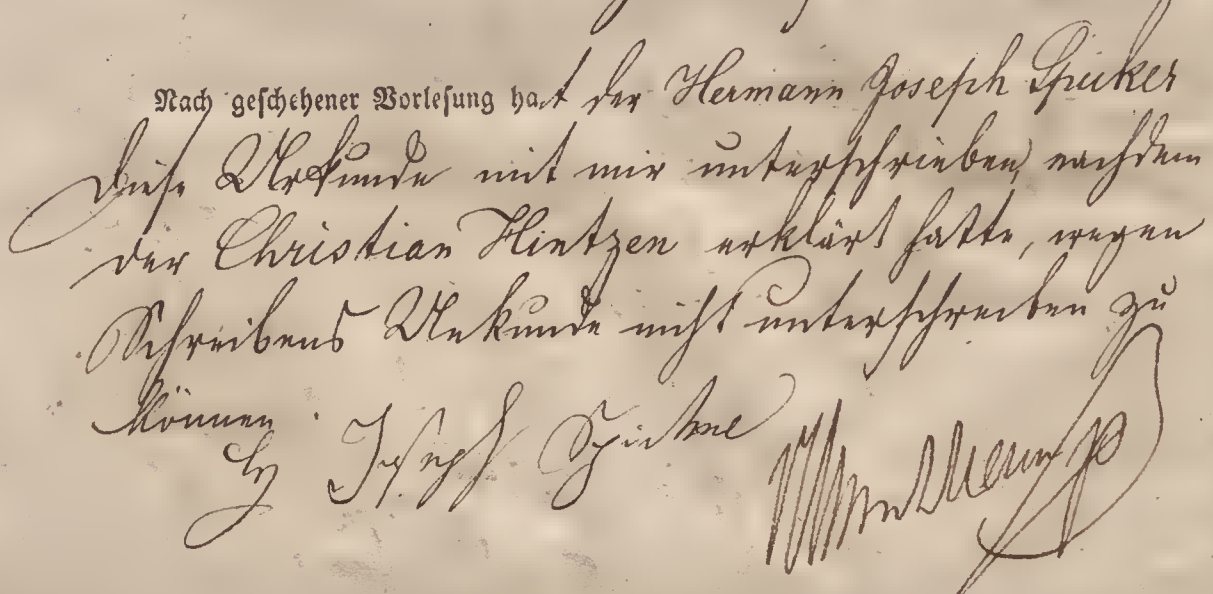 Nach geschehener Vorlesung hat der Hermann Joseph Spicker
diese Urkunde mit mir unterschrieben, nachdem
der Christian Hintzen erklärt hatte, wegen
Schreibens Unkunde nicht unterschreiben zu
können.
Hy Joseph Spicker